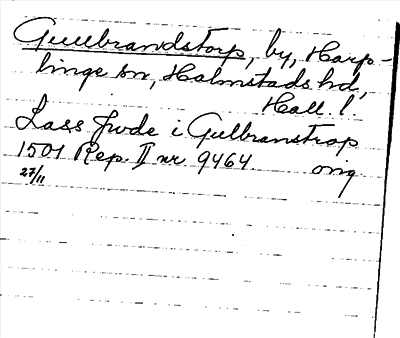 Gullbrandstorp, by, Harp-
linge sn, Halmstads hd,
Hall. l.
Lass Jwde i Gulbranstrop
1501 Rep. II nr 9464 orig
27/11